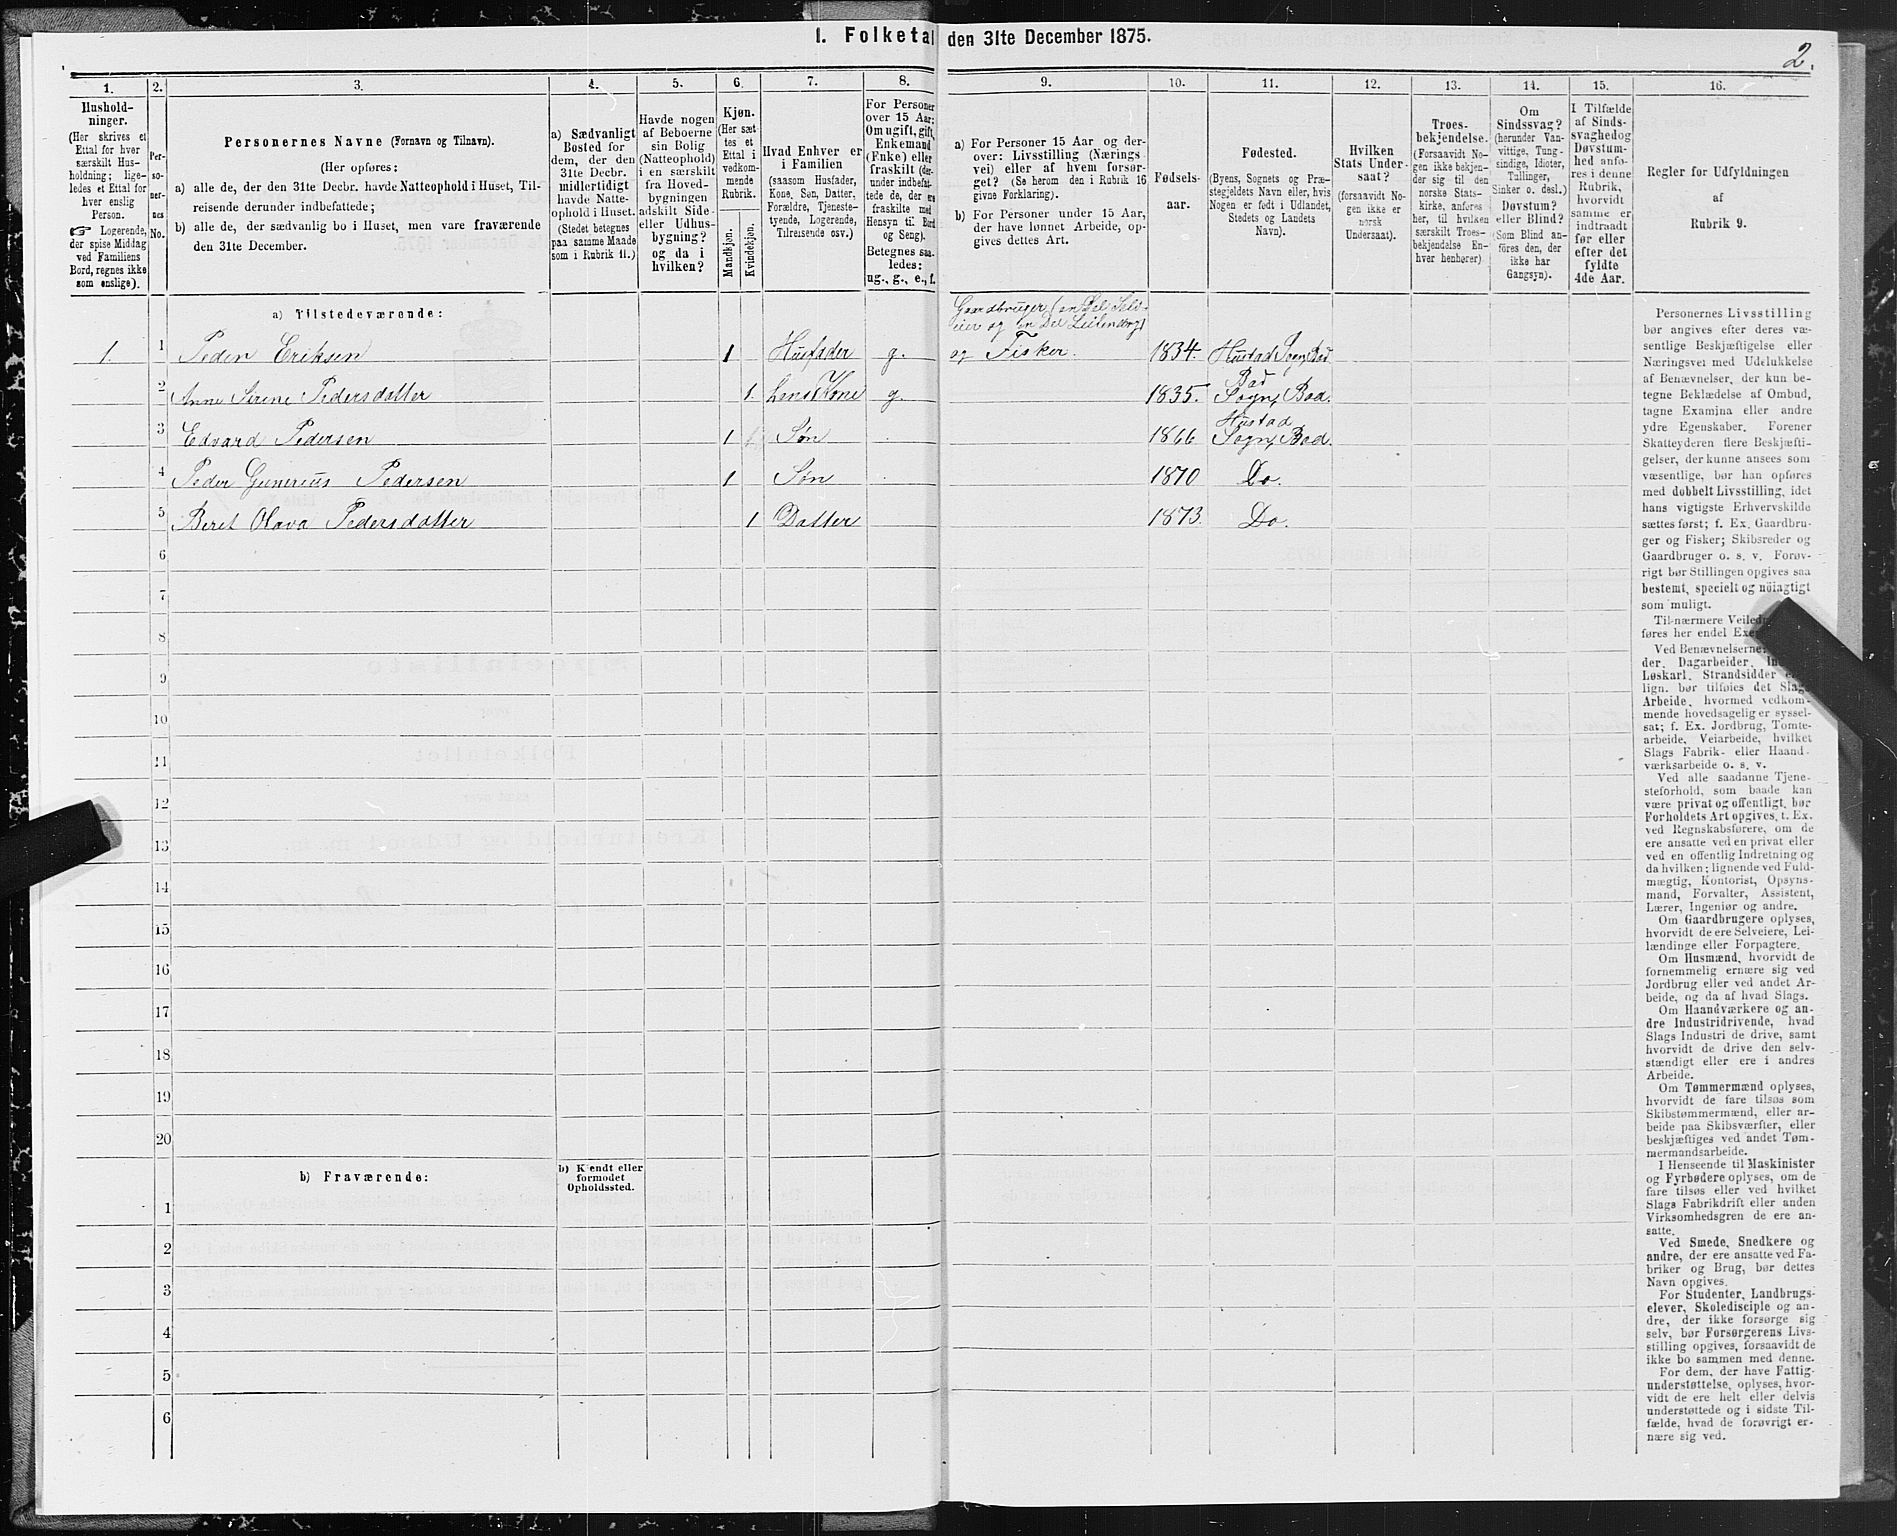 1. Folketal den 31te December 1875.
2.
1.
2.
3.
4.
5.
6.
7.
8.
9.
10.
11.
12.
13.
14.
15.
16.
Hushold-
ninger.
(Her skrives et
Ettal for hver
særskilt Hus-
holdning; lige-
ledes et Ettal for
hver enslig
Person.
☞ Logerende,
der spise Middag
ved Familiens
Bord, regnes ikke
som enslige).
Per-
so-
ner-
nes
No.
Personernes Navne (Fornavn og Tilnavn).
(Her opføres:
a) alle de, der den 31te Decbr. havde Natteophold i Huset, Til-
reisende derunder indbefattede;
b) alle de, der sædvanlig bo i Huset, men vare fraværende
den 31te December.
a) Sædvanligt
Bosted for
dem, der den
31te Decbr.
midlertidigt
havde Natte-
ophold i Huset.
(Stedet betegnes
paa samme Maade
som i Rubrik 11.)
Havde nogen
af Beboerne
sin Bolig
(Natteophold)
i en særskilt
fra Hoved-
bygningen
adskilt Side-
eller Udhus-
bygning?
og da i
hvilken?
Kjøn.
(Her sæt-
tes et
Ettal i
vedkom-
mende
Rubrik.
Mandkjøn.
Kvindekjøn.
Hvad Enhver er
i Familien
(saasom Husfader,
Kone, Søn, Datter,
Forældre, Tjeneste-
tyende, Logerende,
Tilreisende osv.)
For Personer
over 15 Aar:
Om ugift, gift,
Enkemand
(Enke) eller
fraskilt (der-
under indbefat-
tede de, der ere
fraskilte med
Hensyn til Bord
og Seng).
Betegnes saa-
ledes:
ug., g., e., f.
a) For Personer 15 Aar og der-
over: Livsstilling (Nærings-
vei) eller af hvem forsør-
get? (Se herom den i Rubrik 16
givne Forklaring).
b) For Personer under 15 Aar,
der have lønnet Arbeide, op-
gives dettes Art.
Fødsels-
aar.
Fødested.
(Byens, Sognets og Præ-
stegjeldets Navn eller, hvis
Nogen er født i Udlandet,
Stedets og Landets
Navn).
Hvilken
Stats Under-
saat?
(forsaavidt No-
gen ikke er
norsk
Undersaat).
Troes-
bekjendelse.
(Forsaavidt No-
gen ikke bekjen-
der sig til den
norske Stats-
kirke, anføres
her, til hvilken
særskilt Troes-
bekjendelse En-
hver henhører)
Om
Sindssvag?
(herunder Van-
vittige, Tung-
sindige, Idioter,
Tullinger,
Sinker o. desl.)
Døvstum?
eller Blind?
(Som Blind an-
føres den, der
ikke har
Gangsyn).
I Tilfælde
af Sinds-
svaghedog
Døvstum-
hed anfø-
res i denne
Rubrik,
hvorvidt
samme er
indtraadt
før eller
efter det
fyldte
4de Aar.
Regler for Udfyldningen
af
Rubrik 9.
a) Tilstedeværende:
Gaardbruger (en Del Selv-
eier og en Del Leilending)
1. 1 Peder Eriksen 1 Husfader g. og Fisker. 1834. Hustad Sogn, Bud
2 Anne Serine Pedersdatter 1. hans Kone g. 1835. Bud Sogn, Bud.
3 Edvard Pedersen 1 Søn 1866 Hustad Sogn, Bud.
4 Peder Gunerius Pedersen 1 Søn 1870 Do.
5 Beret Olava Pedersdatter 1 Datter 1873. Do.
6
7
8
9
10
11
12
13
14
15
16
17
18
19
20
b) Fraværende:
b) Kjendt eller
formodet
Opholdssted.
1
2
3
4
5
6
Personernes Livsstilling
bør angives efter deres væ-
sentlige Beskjæftigelse eller
Næringsvei med Udelukkelse
af Benævnelser, der kun be-
tegne Beklædelse af Ombud,
tagne Examina eller andre
ydre Egenskaber. Forener
Skatteyderen flere Beskjæfti-
gelser, der kunne ansees som
væsentlige, bør han opføres
med dobbelt Livsstilling, idet
hans vigtigste Erhvervskilde
sættes først; f. Ex. Gaardbru-
ger og Fisker; Skibsreder og
Gaardbruger o. s. v. Forøv-
rigt bør Stillingen opgives saa
bestemt, specielt og nöiagtigt
som muligt.
Til nærmere
føres her endel
Ved Benævnelserne:
der, Dagarbeider,
Løskarl, Strandsidder
lign. bør tilføies det Slags
Arbeide, hvormed vedkom-
mende hovedsagelig er syssel-
sat; f. Ex. Jordbrug, Tomte-
arbeide, Veiarbeide, hvilket
Slags Fabrik- eller Haand-
værksarbeide o. s. v.
Ved alle saadanne Tjene-
steforhold, som baade kan
være privat og offentligt, bør
Forholdets Art opgives, t. Ex.
ved Regnskabsførere, om de
ere ansatte ved en privat eller
ved en offentlig Indretning og
da hvilken; lignende ved Fuld-
mægtig, Kontorist, Opsyns-
mand, Forvalter, Assistent,
Lærer, Ingeniør og andre.
Om Gaardbrugere oplyses,
hvorvidt de ere Selveiere, Lei-
lændinge eller Forpagtere.
Om Husmænd, hvorvidt de
fornemmelig ernære sig ved
Jordbrug eller ved andet Ar-
beide, og da af hvad Slags.
Om Haandværkere og an-
dre Industridrivende, hvad
Slags Industri de drive, samt
hvorvidt de drive den selv-
stændigt eller ere i andres
Arbeide.
Om Tømmermænd oplyses,
hvorvidt de fare tilsøs som
Skibstømmermænd, eller ar-
beide paa Skibsværfter, eller
beskjæftiges ved andet Tøm-
mermandsarbeide.
I Henseende til Maskinister
og Fyrbødere oplyses, om de
fare tilsøs eller ved hvilket
Slags Fabrikdrift eller anden
Virksomhedsgren de ere an-
satte.
Ved Smede, Snedkere og
andre, der ere ansatte ved Fa-
briker og Brug, bør dettes
Navn opgives.
For Studenter, Landbrugs-
elever, Skoledisciple og an-
dre, der ikke forsørge sig
selv, bør Forsørgerens Livs-
stilling opgives, forsaavidt de
ikke bo sammen med denne.
For dem, der have Fattig-
understøttelse, oplyses, hvor-
vidt de ere helt eller delvis
understøttede og i sidste Til-
fælde, hvad de forøvrigt er-
nære sig ved.